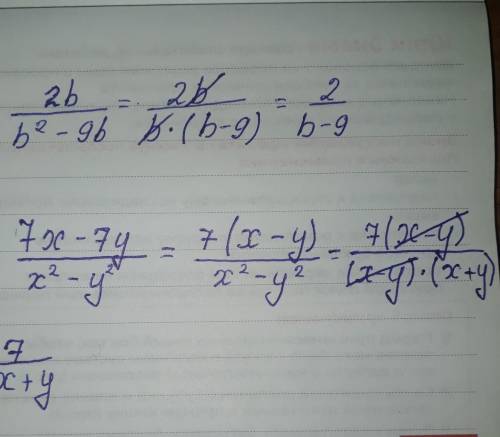 2b/(b² - 9b) = 2b/(b·(b-9)) = 2/(b-9)
(7x - 7y)/(x² - y²) = 7(x - y)/(x² - y²) = 7(x-y)/((x-y)·(x+y))
7/(x+y)